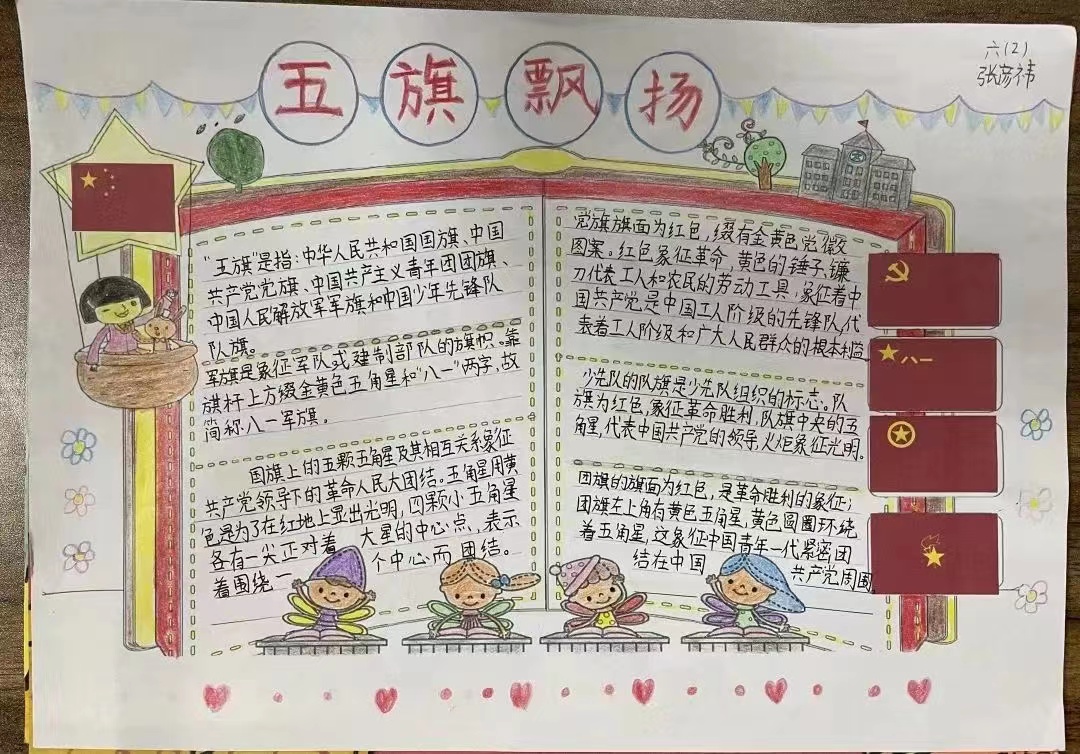 五旗飘扬
六(2)
张彦祎
“五旗”是指:中华人民共和国国旗、中国
共产党党旗、中国共产主义青年团团旗、
中国人民解放军军旗和中国少年先锋队
队旗。
军旗是象征军队或建制部队的旗帜。靠
旗杆上方缀金黄色五角星和“八一”两字,故
简称八一军旗。
国旗上的五颗五角星及其相互关系象征
共产党领导下的革命人民大团结。五角星用黄
色是为了在红地上显出光明,四颗小五角星
各有一尖正对着大星的中心点,表示
着围绕一个中心而团结。
党旗旗面为红色,缀有金黄色党徽
图案。红色象征革命,黄色的锤子、镰
刀代表工人和农民的劳动工具,象征着中
国共产党是中国工人阶级的先锋队,代
表着工人阶级和广大人民群众的根本利益
少先队的队旗是少先队组织的标志。队
旗为红色,象征革命胜利,队旗中央的五
角星,代表中国共产党的领导,火炬象征光明。
团旗的旗面为红色,是革命胜利的象征;
团旗左上角有黄色五角星,黄色圆圈环绕
着五角星,这象征中国青年一代紧密团
结在中国共产党周围
八一